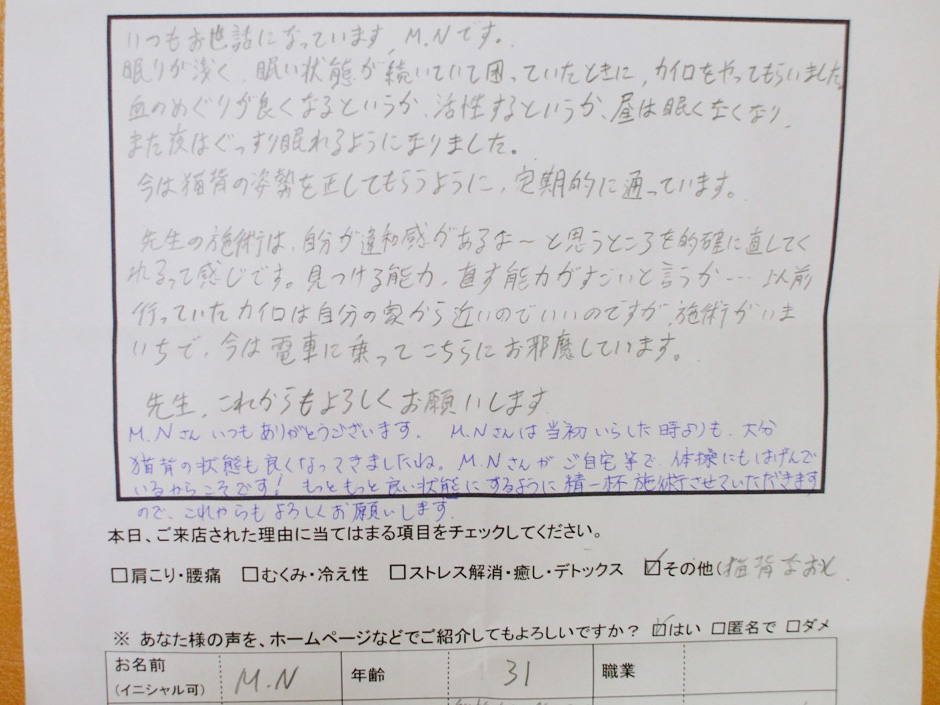 いつもお世話になっています、M.Nです。
眠りが浅く、眠い状態が続いていて困っていたときに、カイロをやってもらいました。
血のめぐりが良くなるというか、活性するというか、昼は眠くなくなり、
また夜はぐっすり眠れるようになりました。
今は猫背の姿勢を正してもらうように、定期的に通っています。
先生の施術は、自分が違和感があるな〜と思うところを的確に直してく
れるって感じです。見つける能力、直す能力がすごいと言うか…以前
行っていたカイロは自分の家から近いのでいいのですが、施術がいま
いちで、今は電車に乗ってこちらにお邪魔しています。
先生、これからもよろしくお願いします
M.Nさんいつもありがとうございます。 M.Nさんは当初いらした時よりも、大分
猫背の状態も良くなってきましたね。M.Nさんがご自宅等で、体操にもはげんで
いるからこそです! もっともっと良い状態にするように精一杯施術させていただきます
ので、これからもよろしくお願いします。
本日、ご来店された理由に当てはまる項目をチェックしてください。
□肩こり・腰痛 □むくみ・冷え性 □ストレス解消・癒し・デトックス ☑その他(猫背なおし
※ あなた様の声を、ホームページなどでご紹介してもよろしいですか? ☑はい □匿名で □ダメ
お名前 M.N 年齢 31 職業
(イニシャル可)